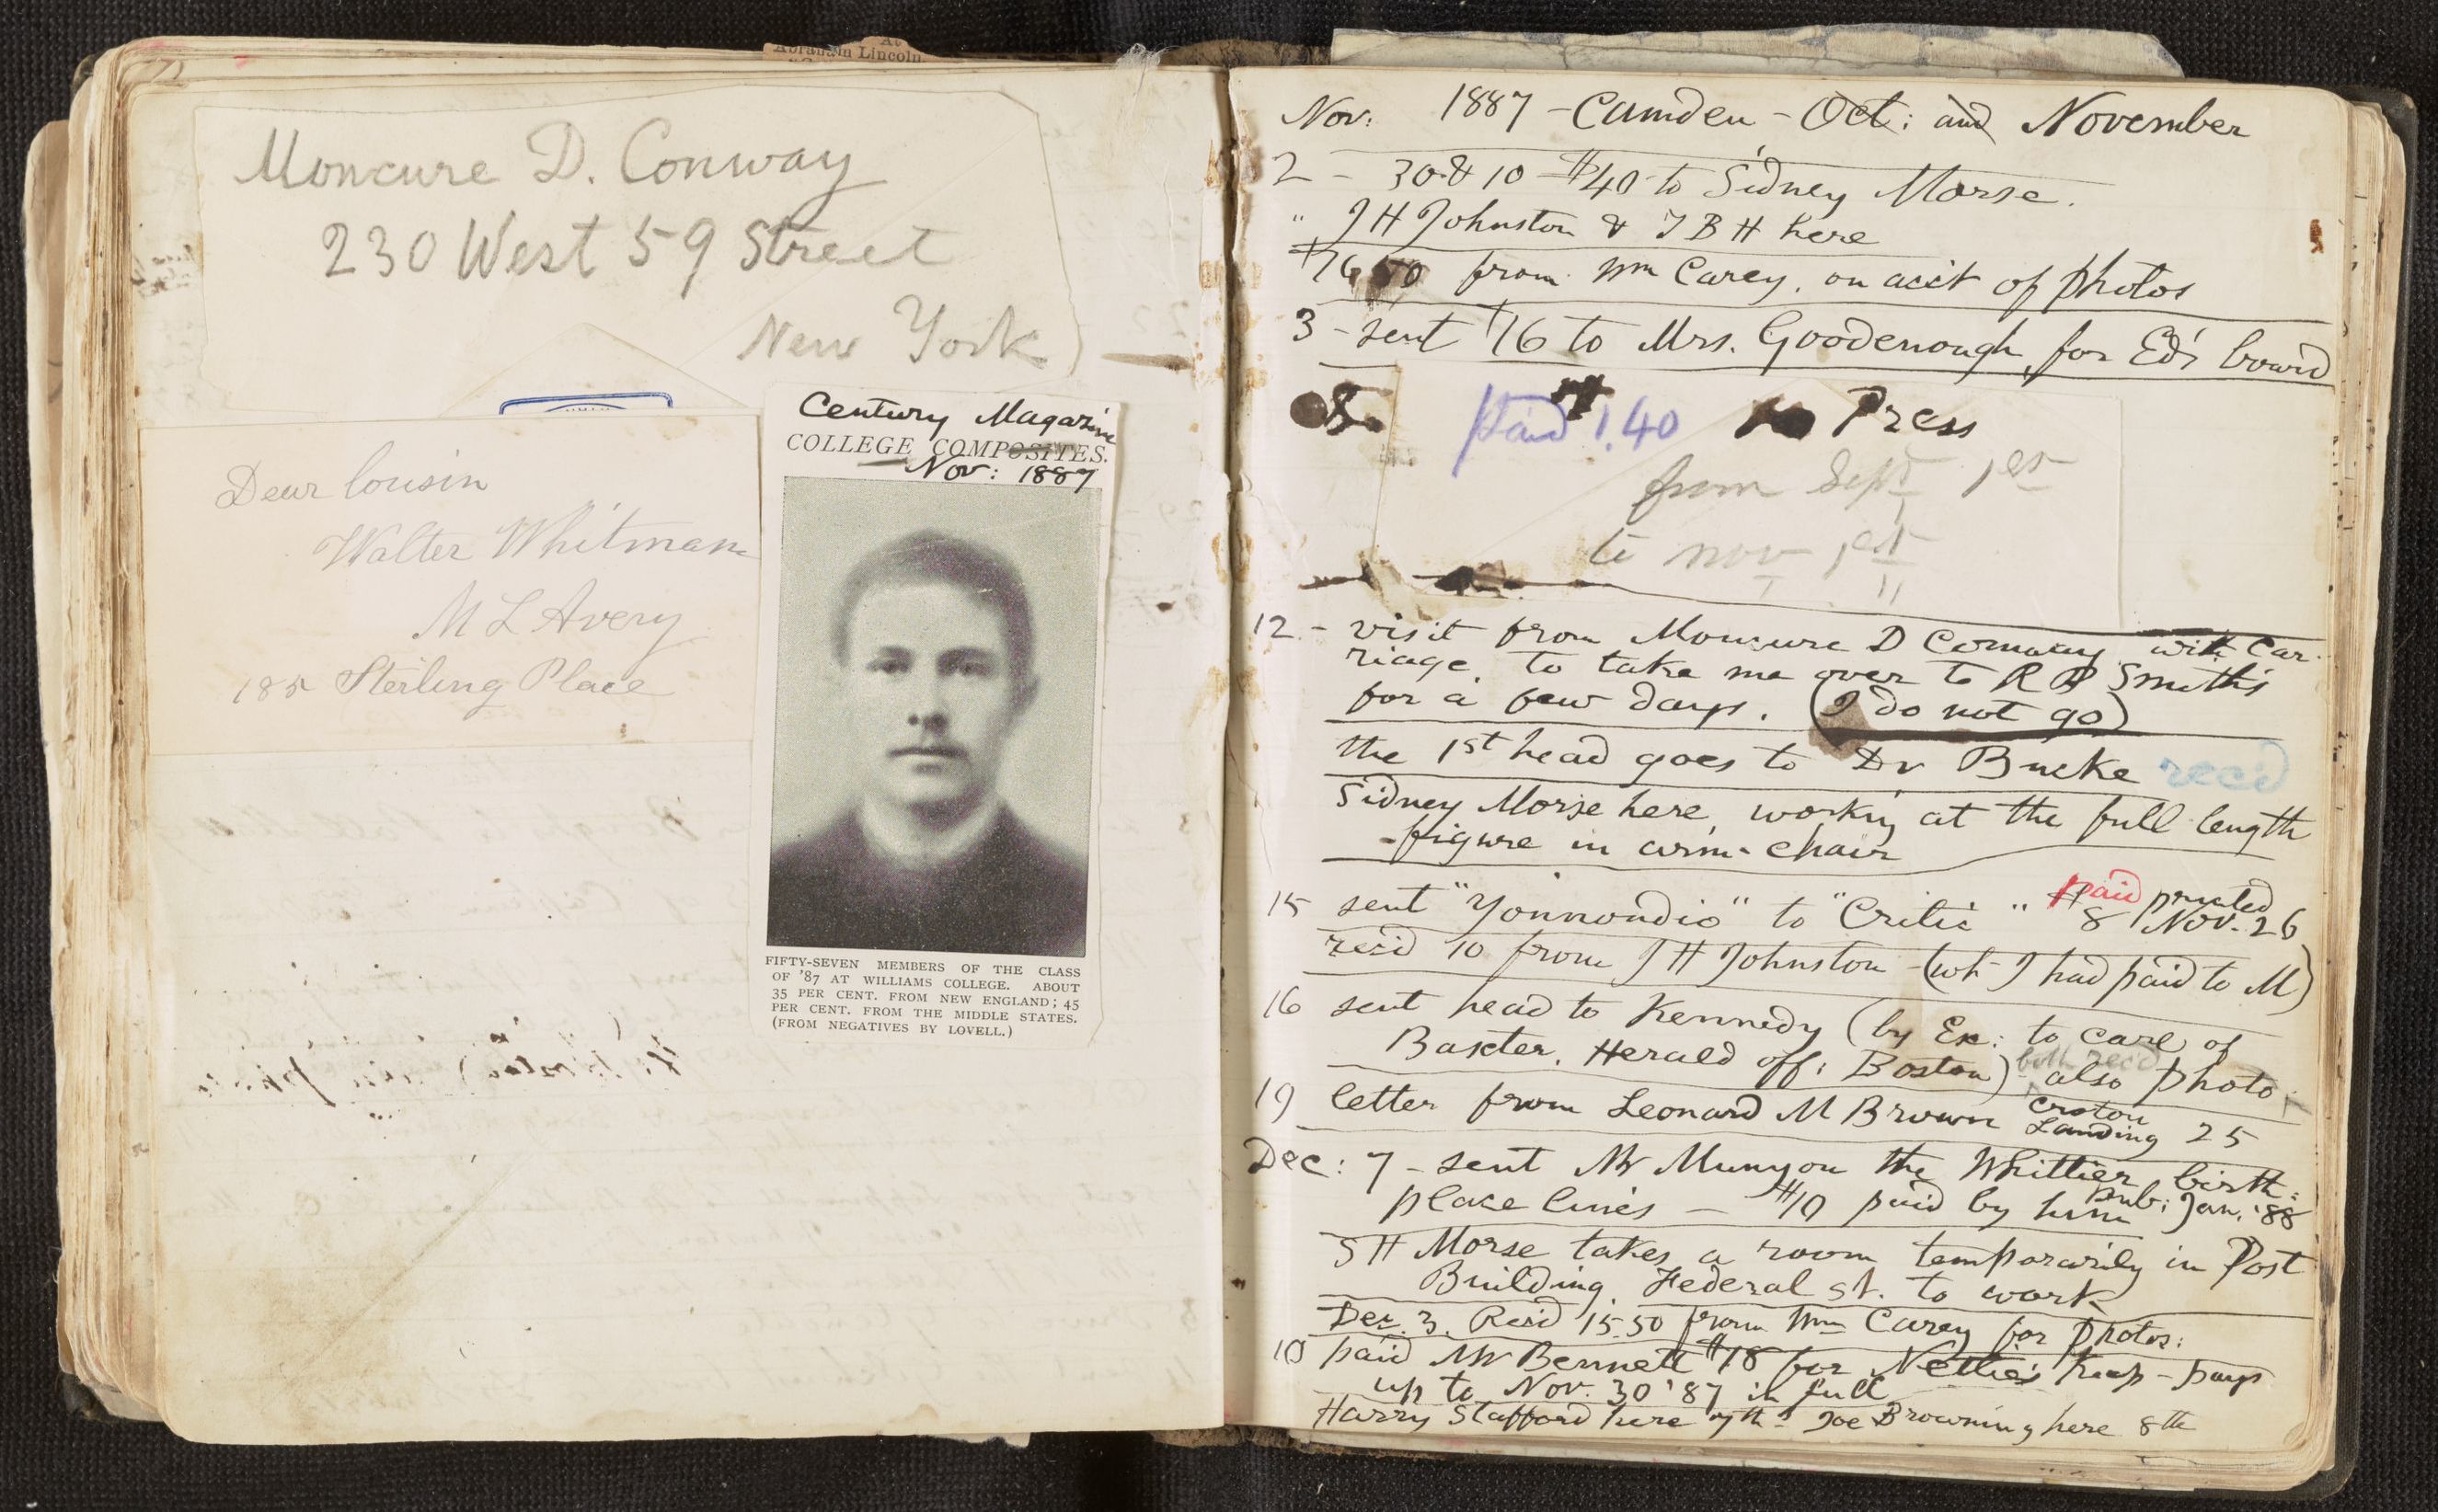 At
Abraham Lincoln
Moncure D. Conway
230 West 59 Street
New York
Dear Cousin
Walter Whitman
M L Avery
185 Sterling Place
Century Magazine
COLLEGE COMPOSITES.
Nov: 1887
FIFTY-SEVEN MEMBERS OF THE CLASS
OF '87 AT WILLIAMS COLLEGE. ABOUT
35 PER CENT. FROM NEW ENGLAND; 45
PER CENT. FROM THE MIDDLE STATES.
(FROM NEGATIVES BY LOVELL.)
Nov: 1887 – Camden – Oct: and November
2 – 30 & 10 – $40 to Sidney Morse.
" J H Johnston & J B H here
from Wm Carey, on acc't of photos
3 – sent $16 to Mrs. Goodenough, for Ed's board
paid 1.40 Press
from Sept 1st
to nov 1st
12 – visit from Moncure D Conway with car-
riage, to take me over to R P Smith's
for a few days. (I do not go)
the 1st head goes to Dr Bucke rec'd
Sidney Morse here, working at the full length
figure in arm-chair
15 sent "Yonnondio" to "Critic" $8 paid printed Nov. 26
rec'd 10 from J H Johnston (wh I had paid to M)
16 sent head to Kennedy (by Ex: to care of
Baxter, Herald off: Boston) – also photo both rec'd
19 letter from Leonard M Brown Croton Landing 25
Dec: 7 – sent Mr Munyon the Whittier birth-
place lines – $10 paid by him pub: Jan. '88
S H Morse takes a room temporarily in Post
Building, Federal st. to work
Dec. 3. Rec'd 15.50 from Wm Carey for photos:
10 paid Mr Bennett $18 for Nettie's keep – pays
up to Nov. 30 '87 in full
Harry Stafford here 7th – Joe Browning here 8th